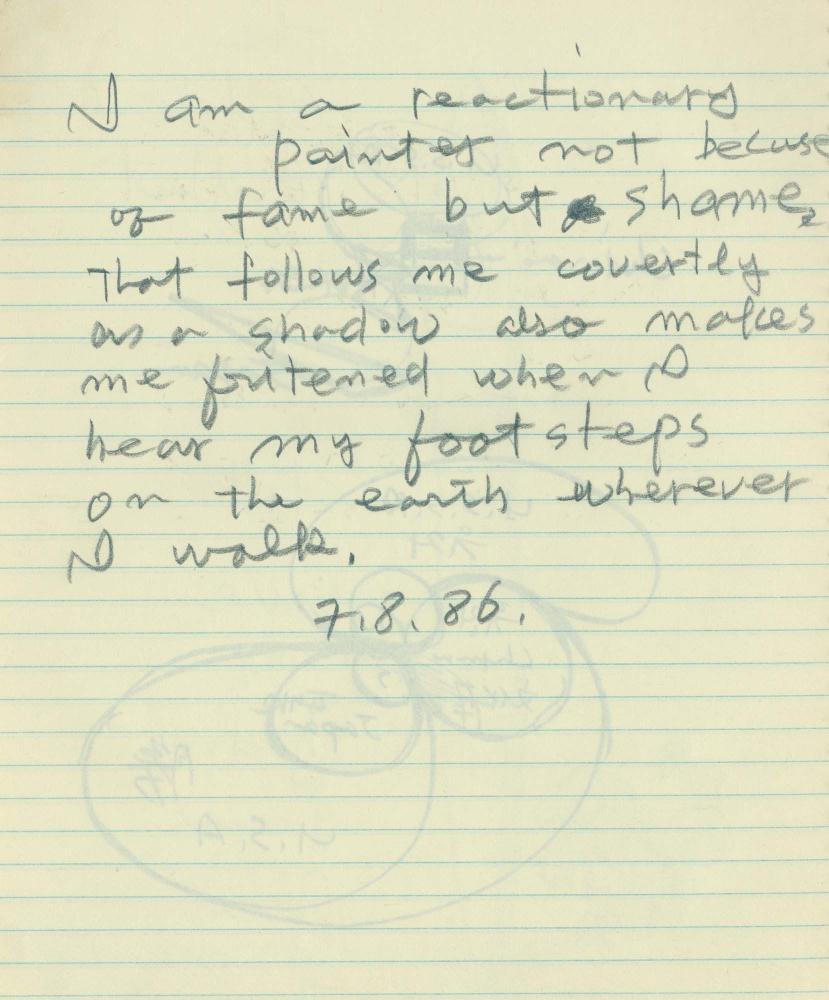 I am a reactionary
painter not becuse
of fame but shame,
That follows me covertly
as a shadow also makes
me fritened when I
hear my foot steps
on the earth wherever
I walk.
7.8.86.